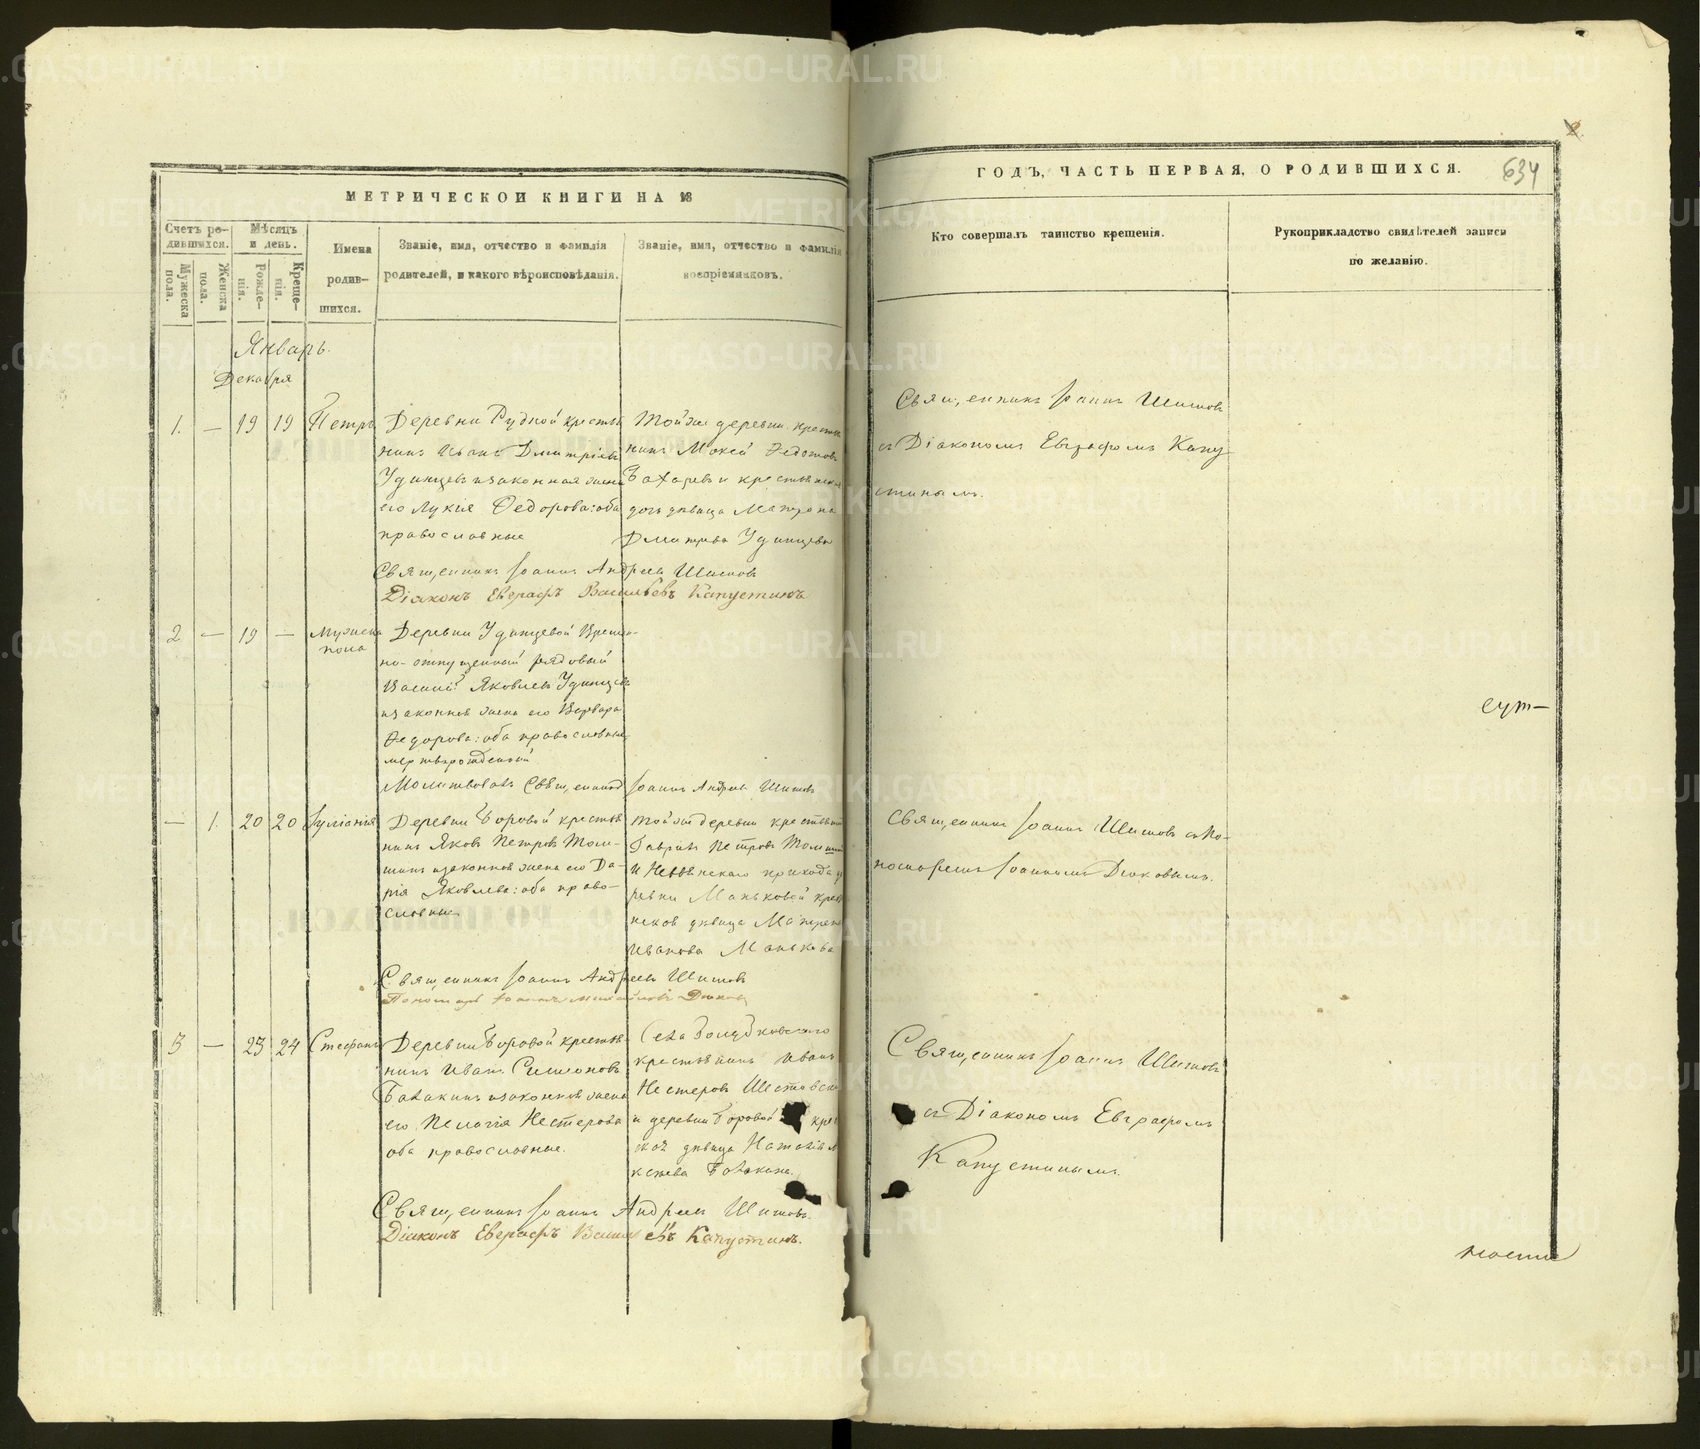 МЕТРИЧЕСКОЙ КНИГИ НА 18
ГОДЪ, ЧАСТЬ ПЕРВАЯ, О РОДИВШИХСЯ.
634
Счетъ ро-
дившихся.
Мужеска
пола.
Женска
пола.
Мѣсяцъ
и день.
Рожде-
нія.
Креще-
нія.
Имена
родив-
шихся.
Званіе, имя, отчество и фамилія
родителей, и какого вѣроисповѣданія.
Званіе, имя, отчество и фамилія
воспріемниковъ.
Кто совершалъ таинство крещенія.
Рукоприкладство свидѣтелей записи
по желанію.
Январь.
Декабря
1. — 19 19 Петръ
Деревни Рудной крестья
нинъ Иванъ Дмитріевъ
Удинцевъ изаконная жена
его Лукія Федорова: оба
православные
Тойже деревни крестья
нинъ Мокей Федотовъ
Бахаревъ и крестьянская
дочь дѣвица Матрона
Дмитрева Удинцева
Священникъ Іоаннъ Шишовъ
съ Діакономъ Евграфомъ Капу-
стинымъ.
Священникъ Іоаннъ Андреевъ Шишовъ
Діаконъ Евграфъ Васильевъ Капустинъ
2 — 19 — мужеска
пола
Деревни Удинцевой Времен-
но-отпущенный рядовый
Василій Яковлевъ Удинцевъ
изаконная жена его Варвара
Федорова: оба православные
мертворожденный
Молитвовалъ Священникъ Іоаннъ Андреевъ Шишовъ
сут-
— 1. 20 20 Іуліанія
Деревни Боровой крестья
нинъ Яковъ Петровъ Томи-
шинъ изаконная жена его Да-
рія Яковлева: оба право-
славные
Тойже деревни крестьянинъ
Гаврилъ Петровъ
и Невьянскаго прихода де
ревни Маньковой крес
нская дѣвица Матрена
Иванова Манькова
Священникъ Іоаннъ Шишовъ съ По-
номаремъ Іоанномъ Дюковымъ.
Священникъ Іоаннъ Андреевъ Шишовъ
Пономарь Іоаннъ Михайловъ Дюковъ
3 — 23 24 Стефанъ
Деревни Боровой крестья
нинъ Иванъ Симеоновъ
Балакинъ изаконная жена
его Пелагія Нестерова
оба православные.
Села
крестьянинъ Иванъ
Нестеровъ
и деревни Боровой крес
ская дѣвица Наталія
Балакина.
Священникъ Іоаннъ Шишовъ
съ Діакономъ Евграфомъ
Капустинымъ.
Священникъ Іоаннъ Андреевъ Шишовъ.
Діаконъ Евграфъ Васильевъ Капустинъ.
METRIKI.GASO-URAL.RU